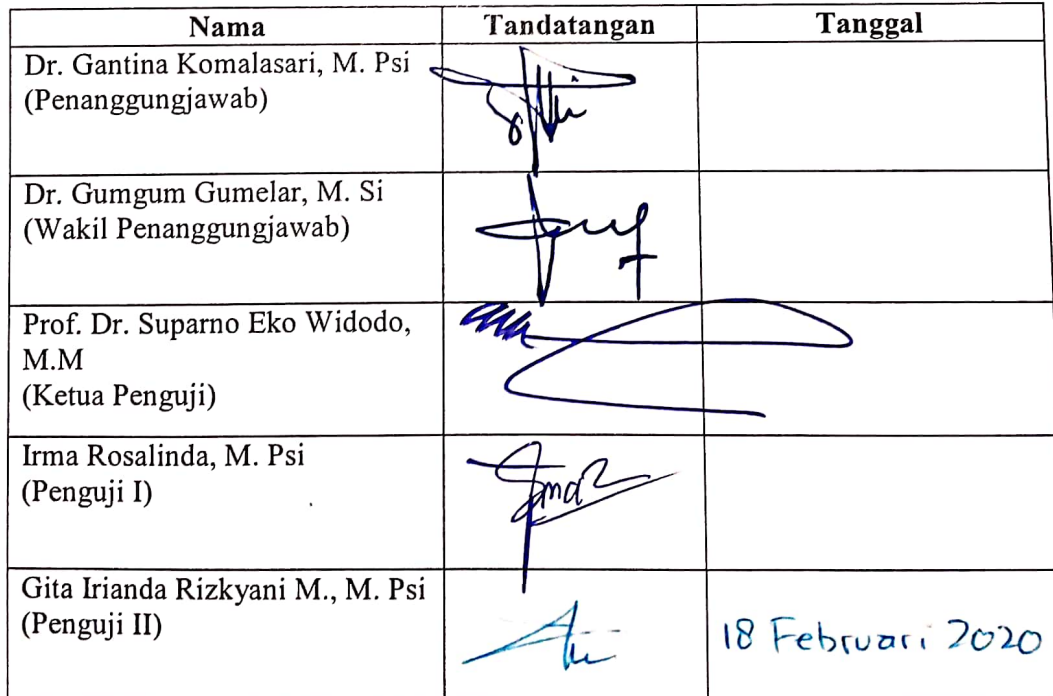 Nama Tandatangan Tanggal
Dr. Gantina Komalasari, M. Psi
(Penanggungjawab)
Dr. Gumgum Gumelar, M. Si
(Wakil Penanggungjawab)
Prof. Dr. Suparno Eko Widodo,
M.M
(Ketua Penguji)
Irma Rosalinda, M. Psi
(Penguji I)
Gita Irianda Rizkyani M., M. Psi
(Penguji II)
18 Februari 2020